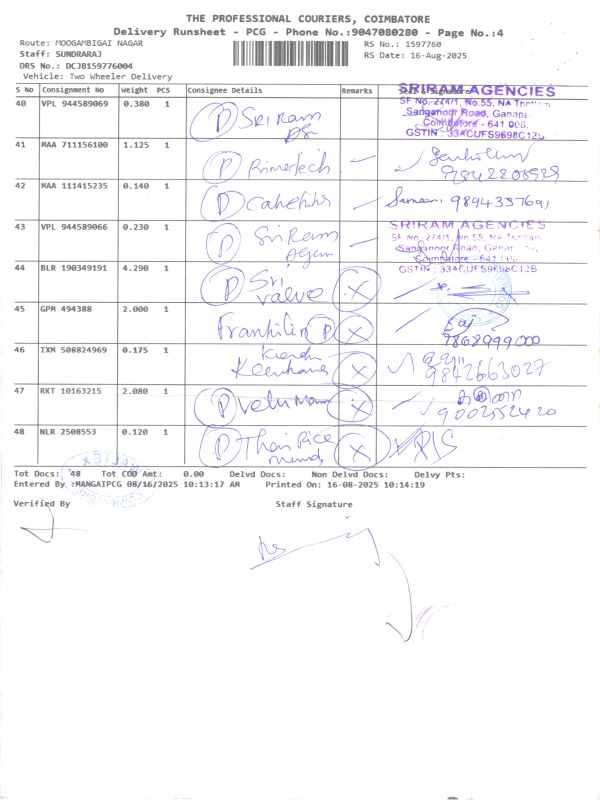 THE PROFESSIONAL COURIERS, COIMBATORE
Delivery Runsheet - PCG - Phone No.:9047080280 - Page No.:4
Route: MOOGAMBIGAI NAGAR
RS No.: 1597760
Staff: SUNDRARAJ
RS Date: 16-Aug-2025
DRS No.: DCJB159776004
Vehicle: Two Wheeler Delivery
S No Consignment No Weight PCS Consignee Details Remarks Seal & Signature
SRIRAM AGENCIES
40 VPL 944589069 0.380 1 P Sri Ram
SF No. 274/1, No.55, NA
Sanganoor Road, Ganapa
Coimbatore - 641 006.
GSTIN : 33ACUFS9698C1ZB
41 MAA 711156100 1.125 1 P Primetech
9842208529
42 MAA 111415235 0.140 1 P 9894357691
43 VPL 944589066 0.230 1 P Sri Ram
SRIRAM AGENCIES
SF No. 274/1, No.55, NA
Sanganoor Road, Ganap
Coimbatore - 641 006
GSTIN : 33ACUFS9698C1ZB
44 BLR 190349191 4.290 1 P Sri
valve X
45 GPM 494388 2.000 1 Franklin P X
7868999000
46 IXM 508824969 0.175 1 X
9842663027
47 RKT 10163215 2.080 1 P X
9002552420
48 NLR 2508553 0.120 1 P X
Tot Docs: 48 Tot COD Amt: 0.00 Delvd Docs: Non Delvd Docs: Delvy Pts:
Entered By :MANGAIPCG 08/16/2025 10:13:17 AM Printed On: 16-08-2025 10:14:19
Verified By Staff Signature